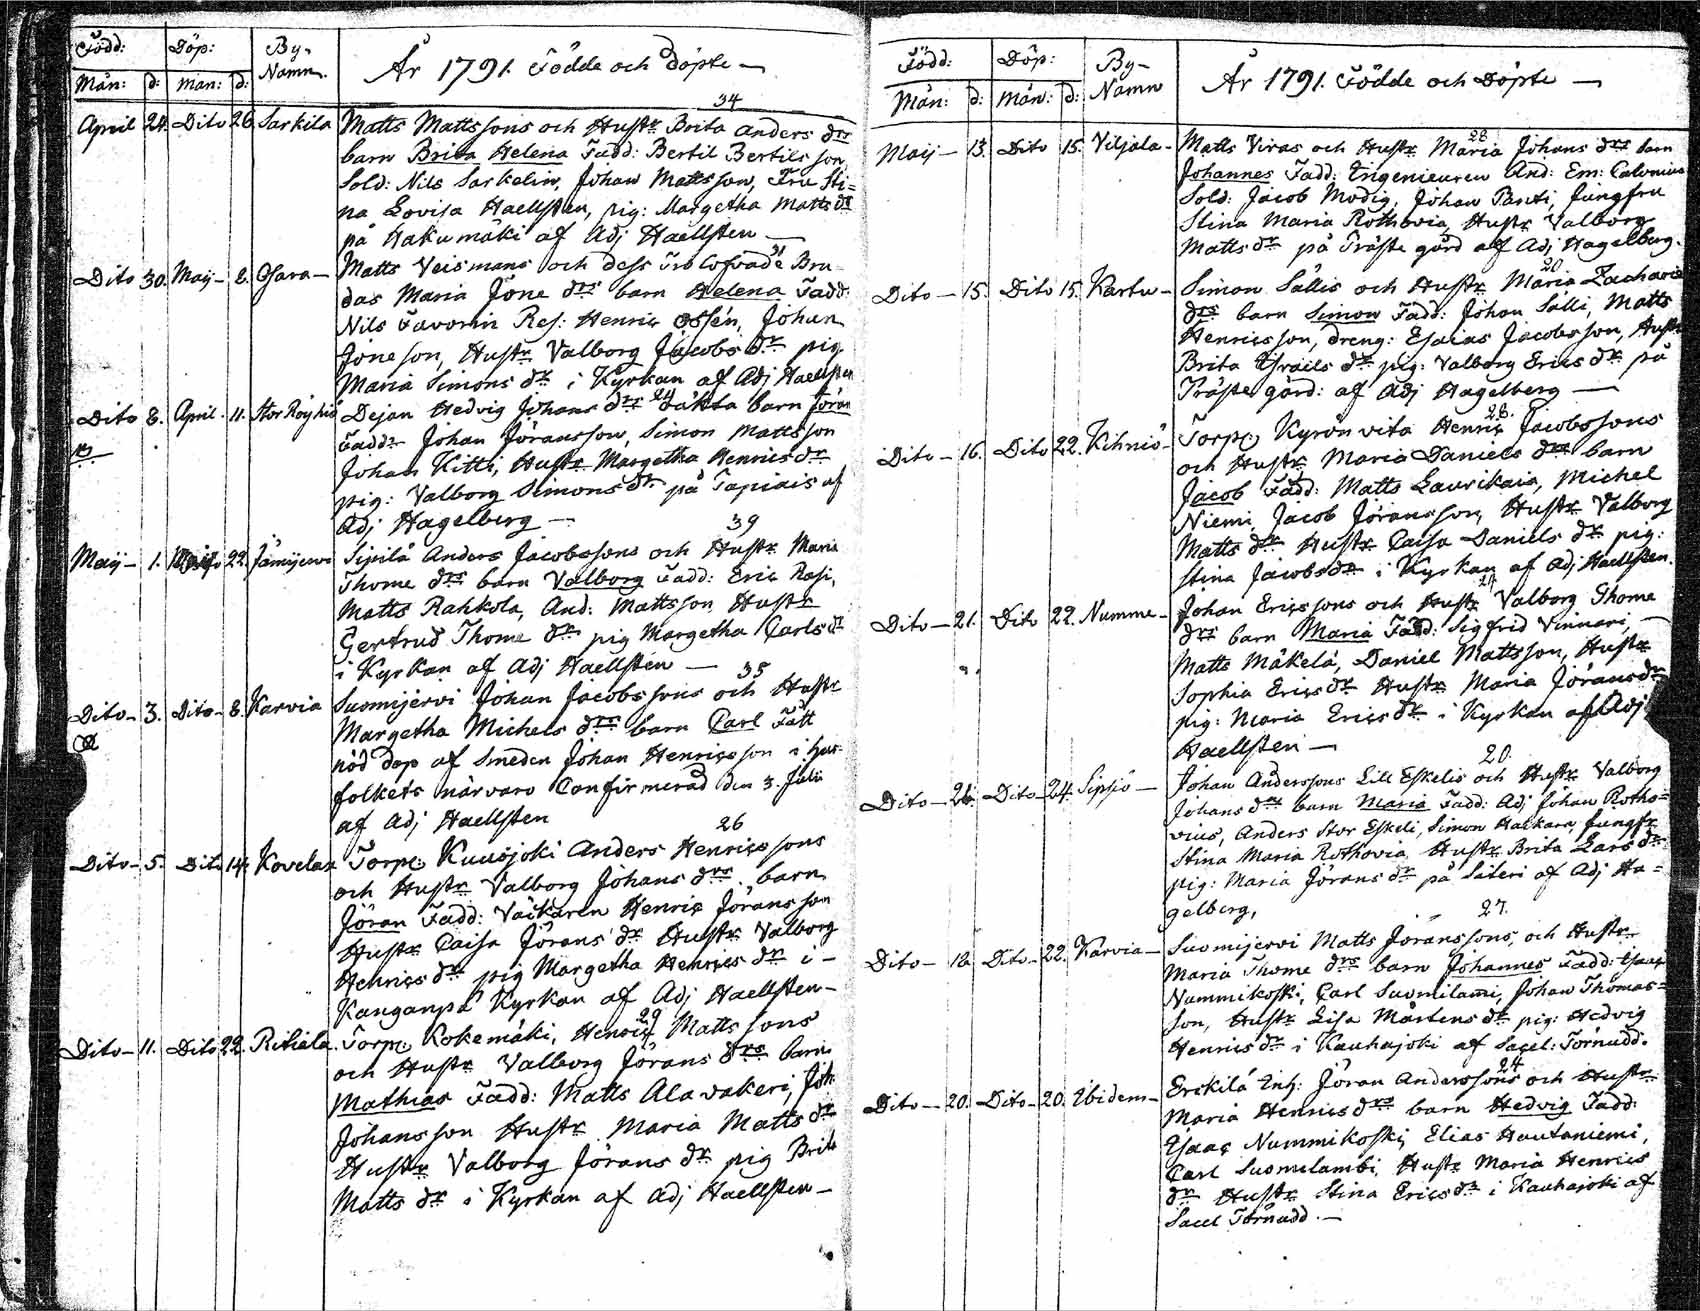 Född: Döp: By-
Mån: d: Mån: d: Namn.
År 1791. Födde och döpte —
34
April 24. Dito 26. Sarkila Matts Mattssons och Hustr Brita Anders drs
barn Brita Helena Fadd: Bertil Bertilsson
Sold: Nils Sarkelin, Johan Mattsson, Fru Sti=
na Lovisa Haellsten, pig: Margetha Matts dr
på Hakumäki af Adj Haellsten —
Dito 30. Maij — 8. Osara — Matts Veismans och dess Trolofvade Bru-
das Maria Jöne drs barn Helena Fadd:
Nils Favorin Res: Henric Johan
Jöneson, Hustr Valborg Jacobs dr pig.
Maria Simons dr i Kyrkan af Adj Haellsten
Dito 8. April. 11. Stor Röyhiö Dejan Hedvig Johans drs 24 oäkta barn Jöran
Fadd: Johan Jöransson, Simon Mattsson
Johan Kitti, Hustr Margetha Henrics dr
pig: Valborg Simons dr på Tapiais af
Adj Hagelberg —
39
Maij — 1. 22. Jämijervi Sipilä Anders Jacobssons och Hustr Maria
Thome drs barn Valborg Fadd: Eric Rasi,
Matts Rahkola, And: Mattsson Hustr
Gertrud Thome dr pig Margetha Carls dr
i Kyrkan af Adj Haellsten —
35
Dito — 3. Dito — 8. Karvia Suomijervi Johan Jacobssons och Hustr
Margetha Michels drs barn Carl Fått
nöd dop af Smeden Johan Henricsson i hus
folkets närvaro Confirmerad den 3. Julii
af Adj Haellsten
26
Dito — 5. Dito 14. Kovelax Torp: Kuusjoki Anders Henricssons
och Hustr Valborg Johans drs barn
Jöran Fadd: Väikären Henric Jöransson
Hustr Caisa Jörans dr Hustr Valborg
Henrics dr pig Margetha Henrics dr i —
Kanganpä Kyrkan af Adj Haellsten —
29
Dito — 11. Dito 22. Rihiala Torp: Kokemäki, Henric Mattssons
och Hustr Valborg Jörans drs barn
Mathias Fadd: Matts Alavakeri, Joh:
Johansson Hustr Maria Matts dr
Hustr Valborg Jörans dr pig Brita
Matts dr i Kyrkan af Adj Haellsten —
Född: Döp: By-
Mån: d: Mån: d: Namn
År 1791. Födde och Döpte —
28
Maij — 13. Dito 15. Viljala — Matts Viras och Hustr Maria Johans drs barn
Johannes Fadd: Engenieuren And: Em: Calonius
Sold: Jacob Modig, Johan Panti, Jungfru
Stina Maria Rothovia, Hustr Valborg
Matts dr på Träste gård af Adj Hagelberg.
20
Dito — 15. Dito 15. Kartu — Simon Sällis och Hustr Maria Zacharie
drs barn Simon Fadd: Johan Sälli, Matts
Henricsson, dreng: Esaias Jacobsson, Hustr
Brita Israels dr pig: Valborg Erics dr på
Träste gård: af Adj Hagelberg —
28.
Dito — 16. Dito 22. Kihniö — Torp: Kyrönvita Henric Jacobssons
och Hustr Maria Daniels drs barn
Jacob Fadd: Matts Laurikais, Michel
Niemi, Jacob Jöransson, Hustr Valborg
Matts dr Hustr Caisa Daniels dr pig:
Stina Jacobs dr i Kyrkan af Adj Haellsten.
Dito — 21. Dito 22. Numme — Johan Ericssons och Hustr Valborg Thome
drs barn Maria Fadd: Sigfrid Vinnari, —
Matts Mäkelä, Daniel Mattsson, Hustr
Sophia Erics dr Hustr Maria Jörans dr
pig: Maria Erics dr i Kyrkan af Adj
Haellsten —
20.
Dito — Dito — 24. Sipsjö — Johan Anderssons Lill Eskelis och Hustr Valborg
Johans drs barn Maria Fadd: Adj Johan Rotho=
vius, Anders Stor Eskeli, Simon Haikara, Jungfr
Stina Maria Rothovia, Hustr Brita Lars dr
pig: Maria Jörans dr på Säteri af Adj Ha=
gelberg,
27.
Dito — 12. Dito — 22. Karvia — Suomijervi Matts Jöranssons, och Hustr
Maria Thome drs barn Johannes Fadd: Esaac
Nummikoski, Carl Suomilami, Johan Thomas=
son, Hustr Lisa Mårtens dr pig: Hedvig
Henrics dr i Kauhajoki af Sacel: Törnudd.
24
Dito — 20. Dito — 20. Ibidem — Erckilä Enh: Jöran Anderssons och Hustr
Maria Henrics drs barn Hedvig Fadd:
Esaac Nummikoski, Elias Hautaniemi,
Carl Suomelambi, Hustr Maria Henrics
dr Hustr Stina Erics dr i Kauhajoki af
Sacel Törnudd. —